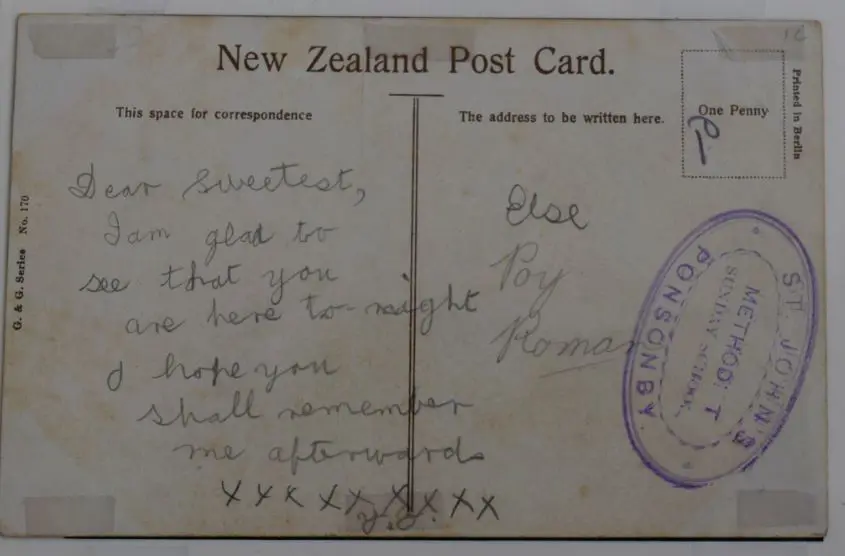 New Zealand Post Card.
This space for correspondence
The address to be written here.
One Penny
Printed in Berlin
G. & G. Series No. 170
Dear Sweetest,
I am glad to
see that you
are here to-night
I hope you
shall remember
me afterwards
X X X X X X X X X
Else
Roma
ST. JOHN'S
METHODIST
SUNDAY SCHOOL,
PONSONBY.